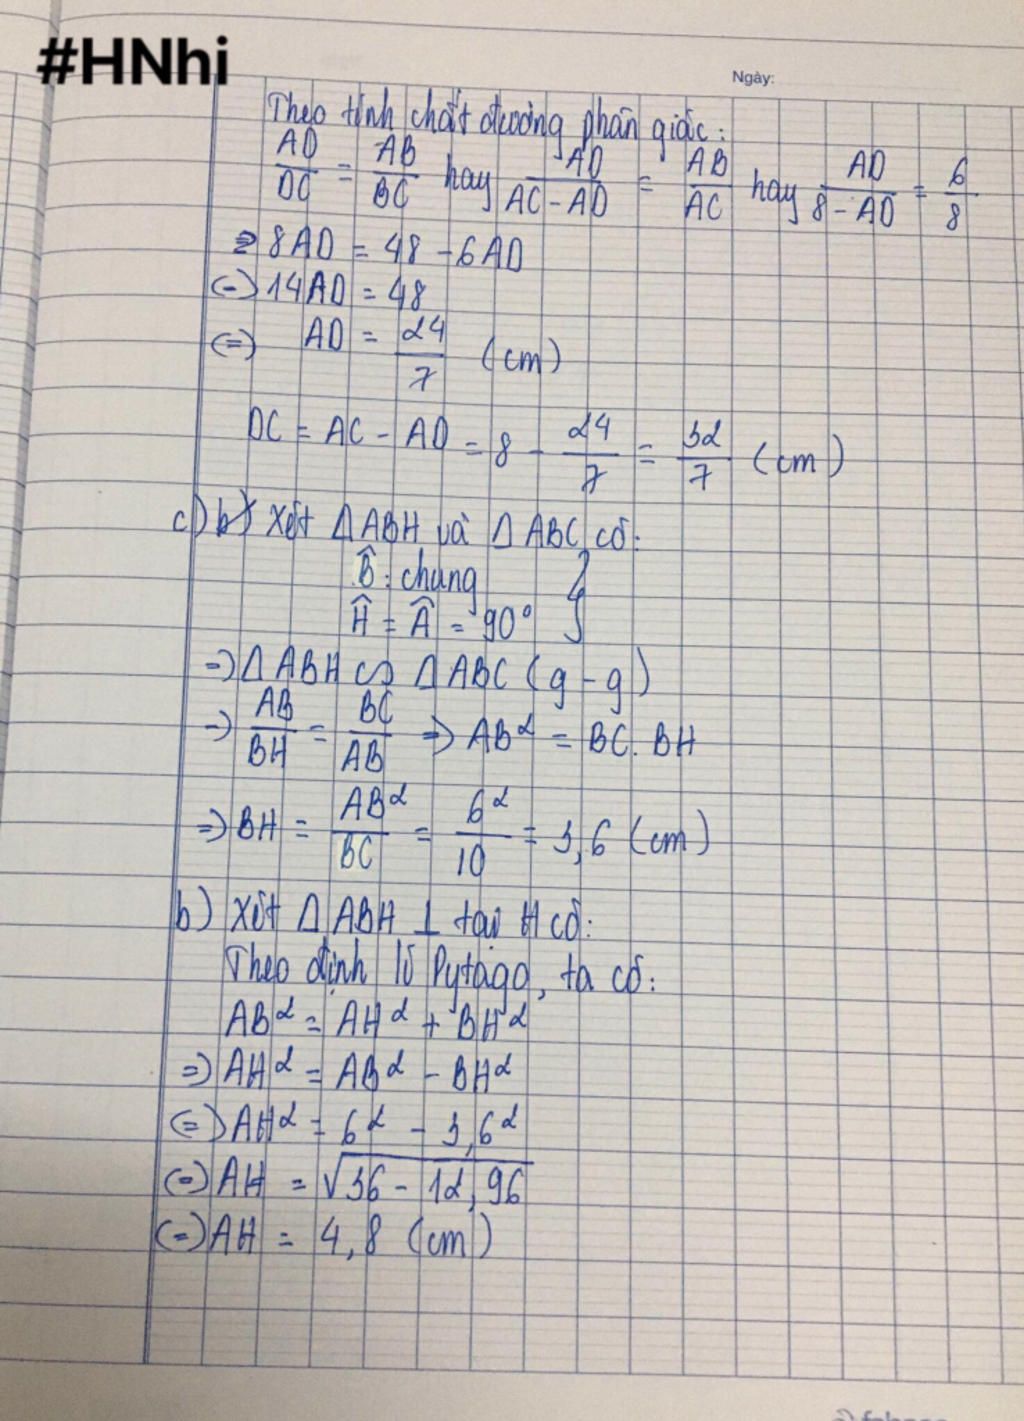 #HNhi
Ngày:
Theo tính chất đường phân giác:
AD/DC = AB/BC hay AD/(AC - AD) = AB/AC hay AD/(8 - AD) = 6/8
=> 8AD = 48 - 6AD
(=) 14AD = 48
(=) AD = 24/7 (cm)
DC = AC - AD = 8 - 24/7 = 32/7 (cm)
c) b) Xét Δ ABH và Δ ABC có:
B̂: chung
Ĥ = Â = 90° }
=> Δ ABH ∽ Δ ABC (g - g)
=> AB/BH = BC/AB => AB² = BC. BH
=> BH = AB²/BC = 6²/10 = 3,6 (cm)
b) Xét Δ ABH ⊥ tại H có:
Theo định lí Pytago, ta có:
AB² = AH² + BH²
=> AH² = AB² - BH²
(=) AH² = 6² - 3,6²
(=) AH = √(36 - 12,96)
(=) AH = 4,8 (cm)